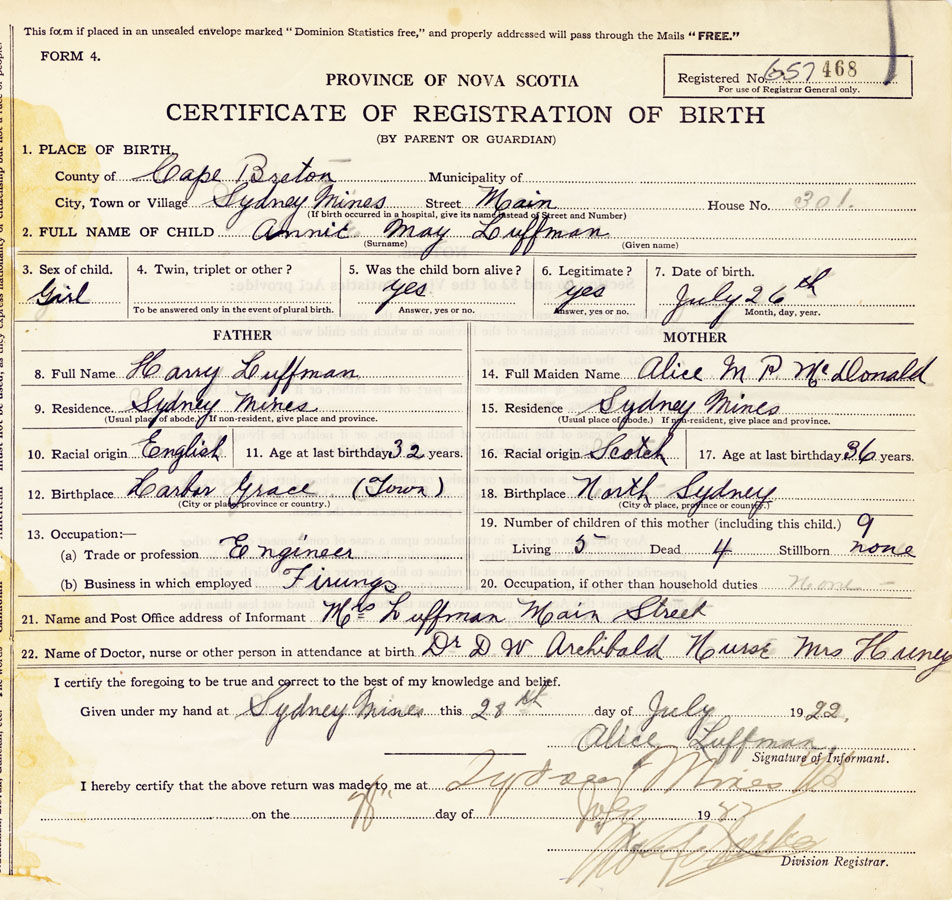 This form if placed in an unsealed envelope marked "Dominion Statistics free," and properly addressed will pass through the Mails "FREE."
FORM 4.
Registered No. 657468
For use of Registrar General only.
PROVINCE OF NOVA SCOTIA
CERTIFICATE OF REGISTRATION OF BIRTH
(BY PARENT OR GUARDIAN)
1. PLACE OF BIRTH.
County of Cape Breton Municipality of
City, Town or Village Sydney Mines Street Main House No. 301.
(If birth occurred in a hospital, give its name instead of Street and Number)
2. FULL NAME OF CHILD Annie May Luffman
(Surname) (Given name)
3. Sex of child. 4. Twin, triplet or other? 5. Was the child born alive? 6. Legitimate? 7. Date of birth.
Girl yes yes July 26th
To be answered only in the event of plural birth. Answer, yes or no. Answer, yes or no. Month, day, year.
FATHER
8. Full Name Harry Luffman
9. Residence Sydney Mines
(Usual place of abode.) If non-resident, give place and province.
10. Racial origin English 11. Age at last birthday 32 years.
12. Birthplace Harbor Grace (Town)
(City or place, province or country.)
13. Occupation:—
(a) Trade or profession Engineer
(b) Business in which employed Firungs
MOTHER
14. Full Maiden Name Alice M P McDonald
15. Residence Sydney Mines
(Usual place of abode.) If non-resident, give place and province.
16. Racial origin Scotch 17. Age at last birthday 36 years.
18. Birthplace North Sydney
(City or place, province or country.)
19. Number of children of this mother (including this child.) 9
Living 5 Dead 4 Stillborn none
20. Occupation, if other than household duties None
21. Name and Post Office address of Informant Mrs Luffman Main Street
22. Name of Doctor, nurse or other person in attendance at birth Dr D W Archibald Nurse Mrs
I certify the foregoing to be true and correct to the best of my knowledge and belief.
Given under my hand at Sydney Mines this 28th day of July 1922.
Alice Luffman
Signature of Informant.
I hereby certify that the above return was made to me at Sydney Mines NS
on the 28" day of July 19
Division Registrar.